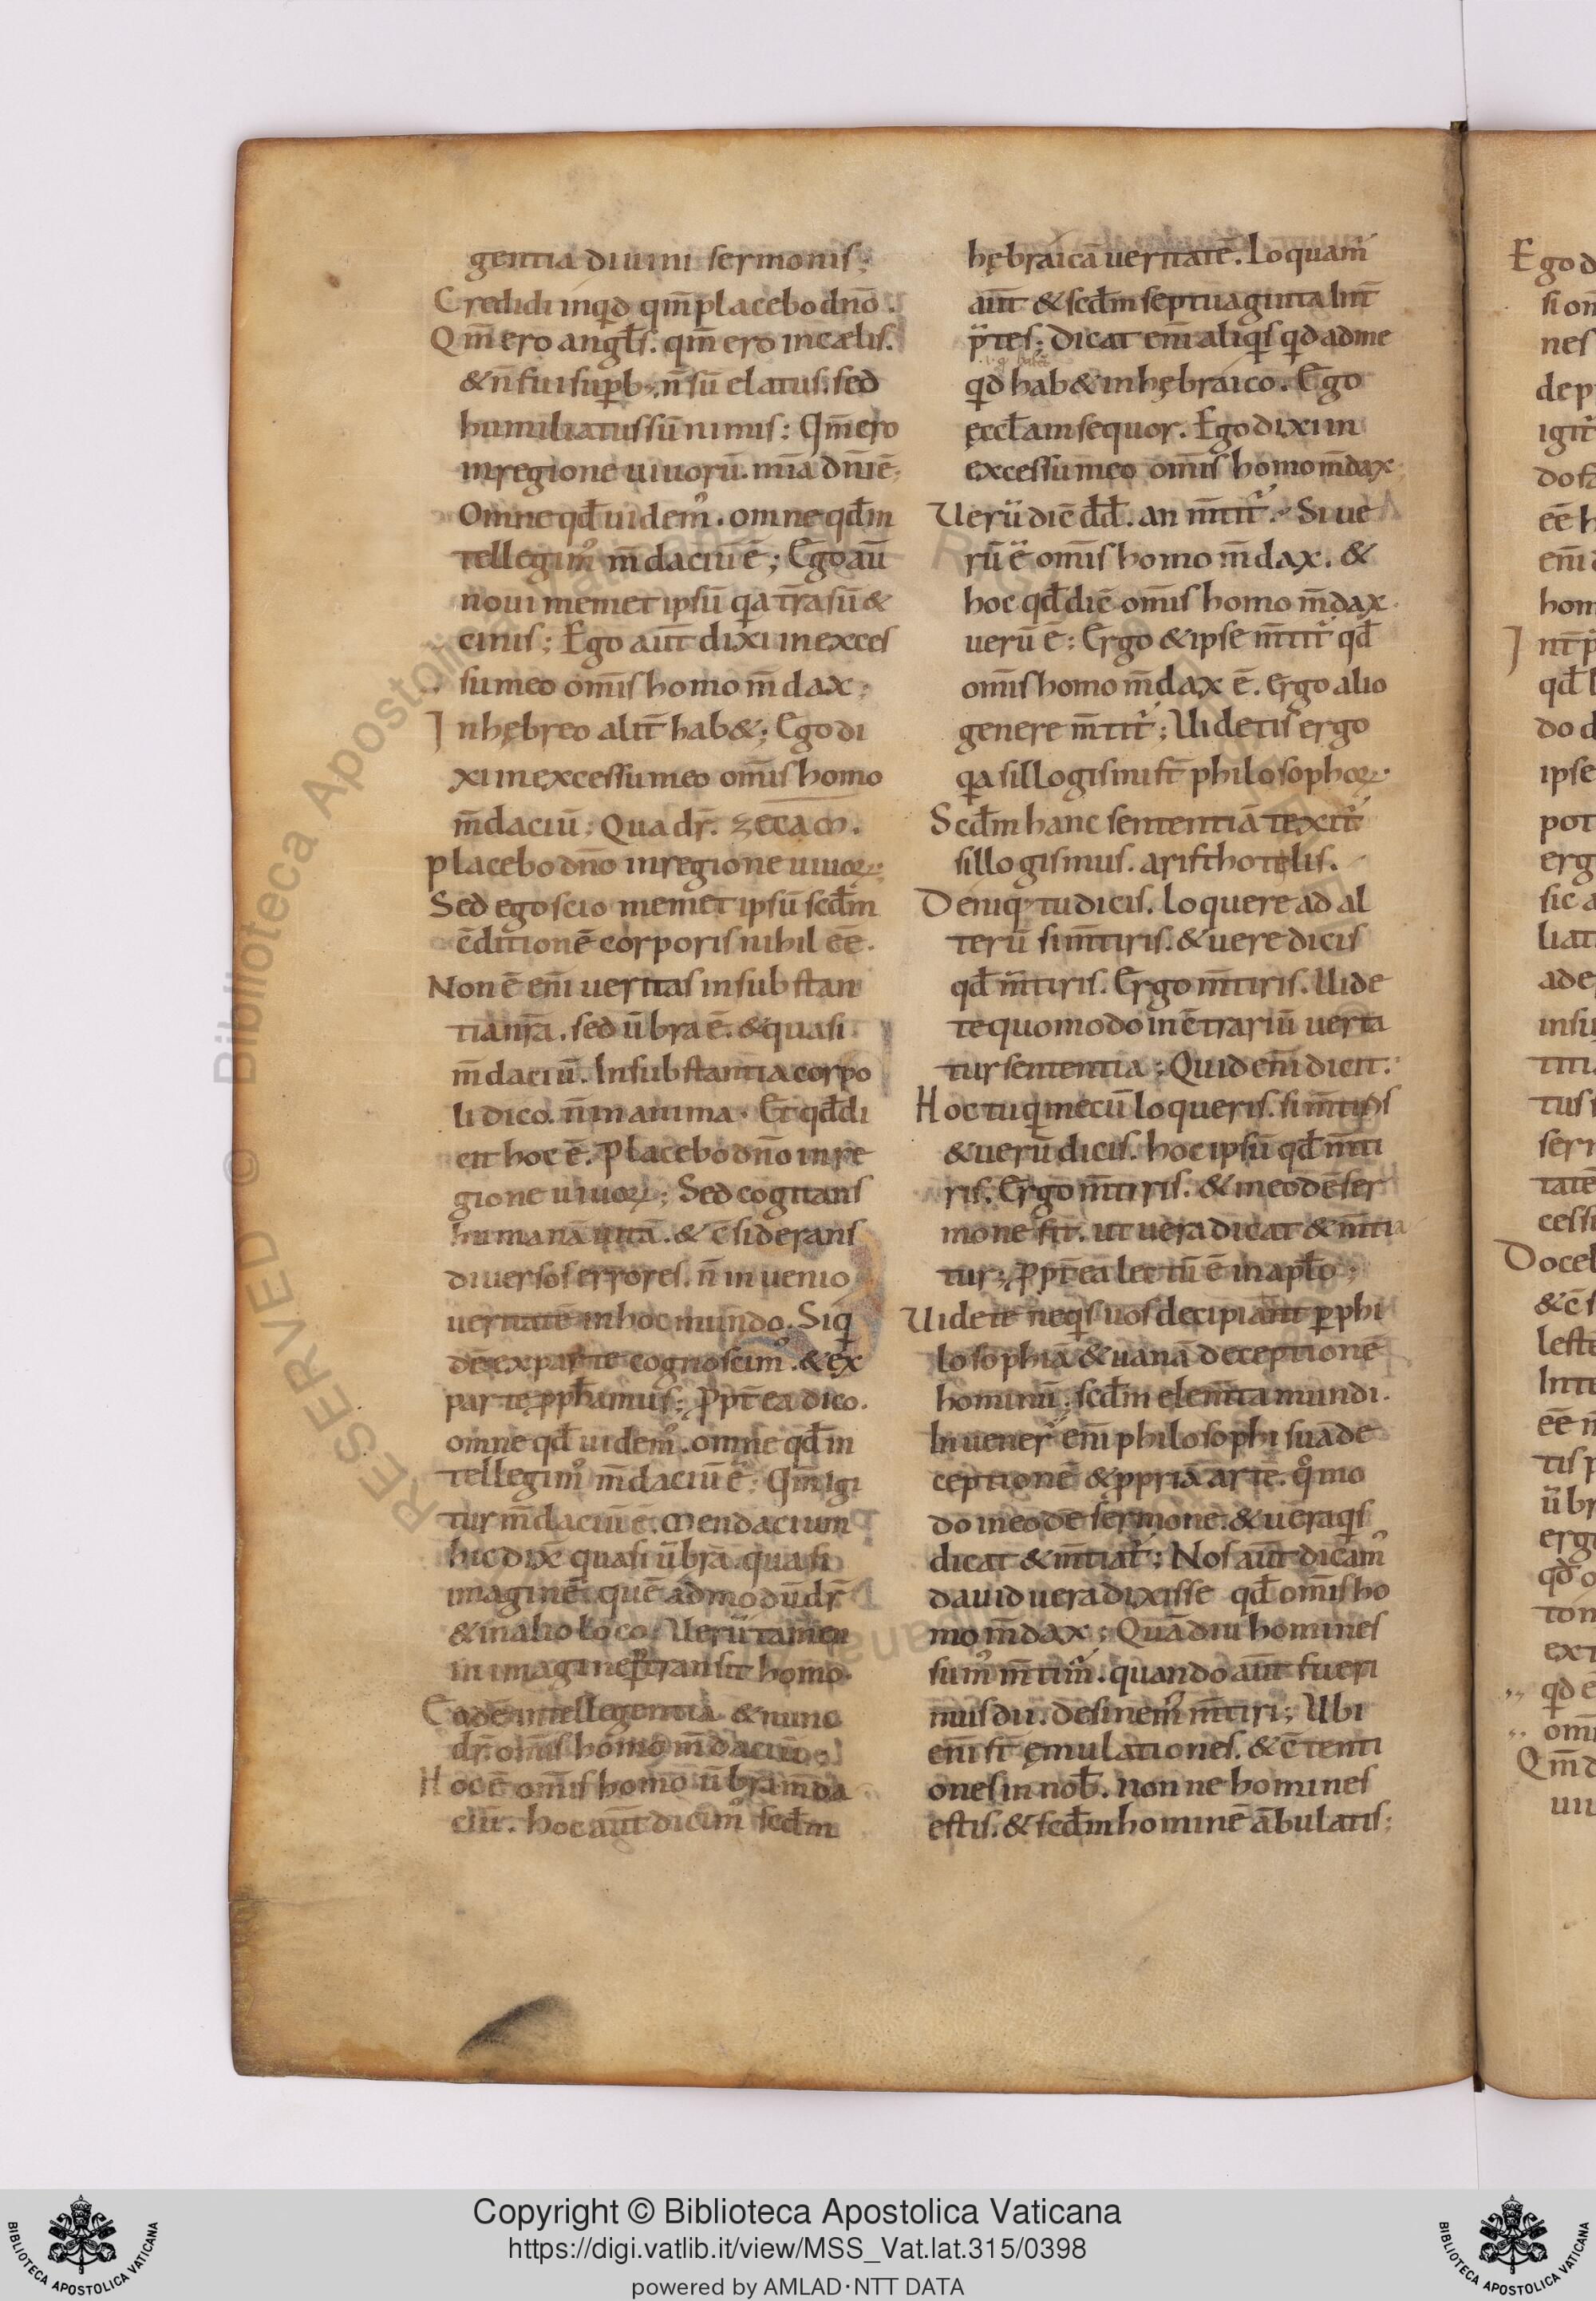 gentia diuini sermonis;
Credidi inqd qm̄ placebo dn̄o.
Qm̄ ero angł̄s. qm̄ ero in cælis.
& n̄ fui supb; n̄ sū elatus. sed
humiliatus sū nimis: Qm̄ ero
in regione uiuorū. mīa dn̄i ē;
Omne qd̄ uidem᾽. omne qd̄ in
tellegim᾽ m̄daciū ē; Ego aū
noui memet ipsū qa t̄ra sū &
cinis; Ego aūt dixi in exces
su meo om̄is homo m̄dax;
In hębreo alit̄ hab&; Ego di
xi in excessu meo om̄is homo
m̄daciū; Qua dr̄. zecam.
placebo dn̄o in regione uiuoꝝ;
Sed ego scio memet ipsū scd̄m
c̄ditionē corporis nihil eē.
Non ē eni ueritas in substan
tia nr̄a. sed ūbra ē. & quasi
m̄daciū. In substantia corpo
li dico. n̄ in anima. Et qd̄ di
cit hoc ē. Placebo dn̄o in re
gione uiuoꝝ; Sed cogitans
humanā uitā. & c̄siderans
diuersos errores. n̄ inuenio
ueritatē in hoc mundo. Siq
dē ex parte cognoscim᾽. & ex
parte pph̄amus; Ppt̄ ea dico.
omne qd̄ uidem᾽. omne qd̄ in
tellegim᾽ m̄daciū ē; Qm̄ igi
tur m̄daciū ē. Mendacium
hic dix̄ quasi ūbrā. quasi
imaginē. quē admodū dr̄
& in alio loco; Uerū tamen
in imagine ptransit homo.
Eadē intellegentia & nunc
dr̄ om̄is homo m̄daciū;
Hoc ē om̄is homo ūbra m̄da
ciū. hoc aūt dicim᾽ scd̄m
hębraicā ueritatē. Loquam̄
aūt & scd̄m septuaginta int̄
p̄tes; Dicat eni aliqis qd ad me
qd hab& in hębraico. Ego
ęccł̄am sequor. Ego dixi in
excessu meo om̄is homo m̄dax.
Uerū dic̄ dd̄. an m̄tit᾽. Si ue
rū ē om̄is homo m̄dax. &
hoc qd̄ dic̄ om̄is homo m̄dax
uerū ē: Ergo & ipse m̄tit᾽ qd̄
om̄is homo m̄dax ē. ergo alio
genere m̄tit᾽; Uidetis ergo
qa sillogismi st̄ philosophoꝝ.
Scd̄m hanc sententiā texit᾽
sillogismus. aristhotelis.
Deniq; tu dicis. loquere ad al
terū si m̄tiris. & uere dicis
qd̄ m̄tiris. Ergo m̄tiris. Uide
te quomodo in c̄trariū uerta
tur sententia; Quid eni dicit:
Hoc tu qi mecū loqueris. si m̄tiris
& uerū dicis. hoc ipsū qd̄ m̄ti
ris. Ergo m̄tiris. & in eodē ser
mone fit. ut uera dicat & m̄tia
tur; Ppt̄ ea lectū ē in apł̄o;
Uidete neqis uos decipiant p phi
losophiā & uanā deceptionē
hominū; scd̄m elem̄ta mundi.
Inuener̄ eni philosophi suā de
ceptionē & ppriā artē. qo mo
do in eodē sermone. & uera qis
dicat & m̄tiat᾽; Nos aūt dicam᾽
dauid uera dixisse qd̄ om̄is ho
mo m̄dax; Quādiu homines
sum᾽ m̄tim᾽. quando aūt fueri
mus dii. desinem᾽ m̄tiri; Ubi
eni st̄ ęmulationes. & c̄tenti
ones in nob̄. nonne homines
estis. & scd̄m hominē ābulatis;
Copyright © Biblioteca Apostolica Vaticana
https://digi.vatlib.it/view/MSS_Vat.lat.315/0398
powered by AMLAD·NTT DATA
BIBLIOTECA APOSTOLICA VATICANA
BIBLIOTECA APOSTOLICA VATICANA